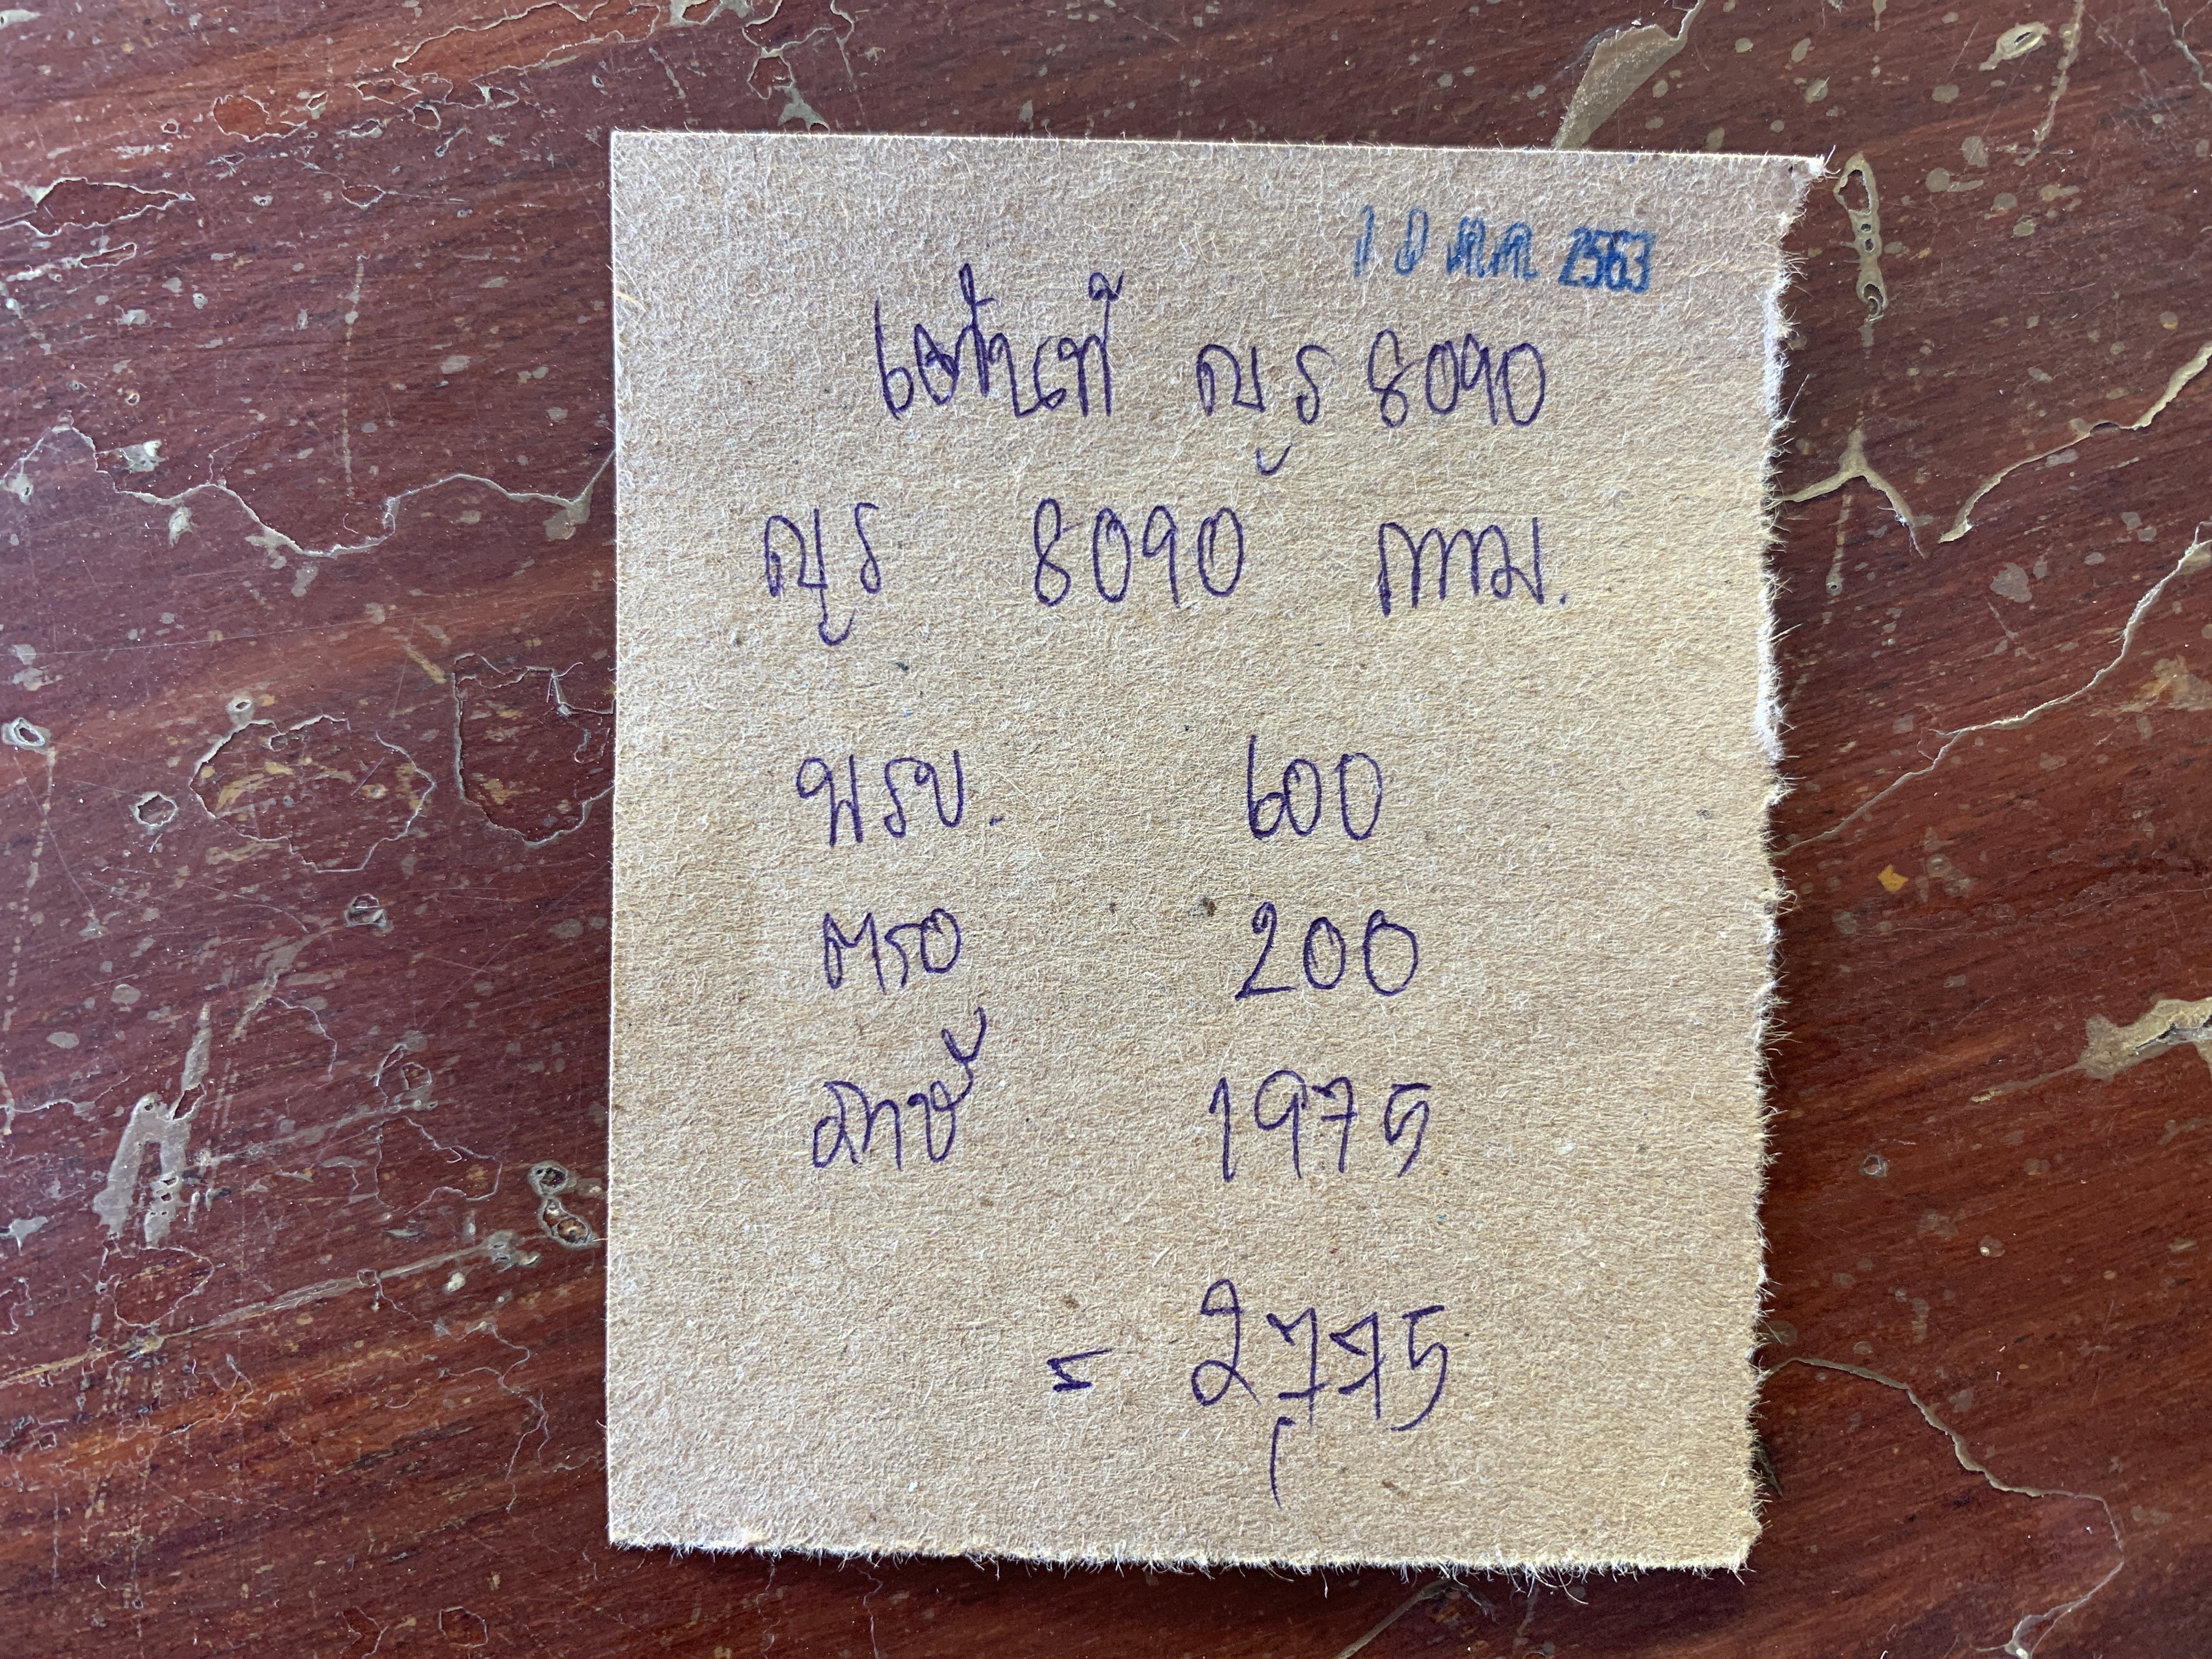 10 ต.ค. 2563
ญร 8090
ญร 8090 กทม.
พรบ. 600
ตรอ 200
ภาษี 1975
= 2775